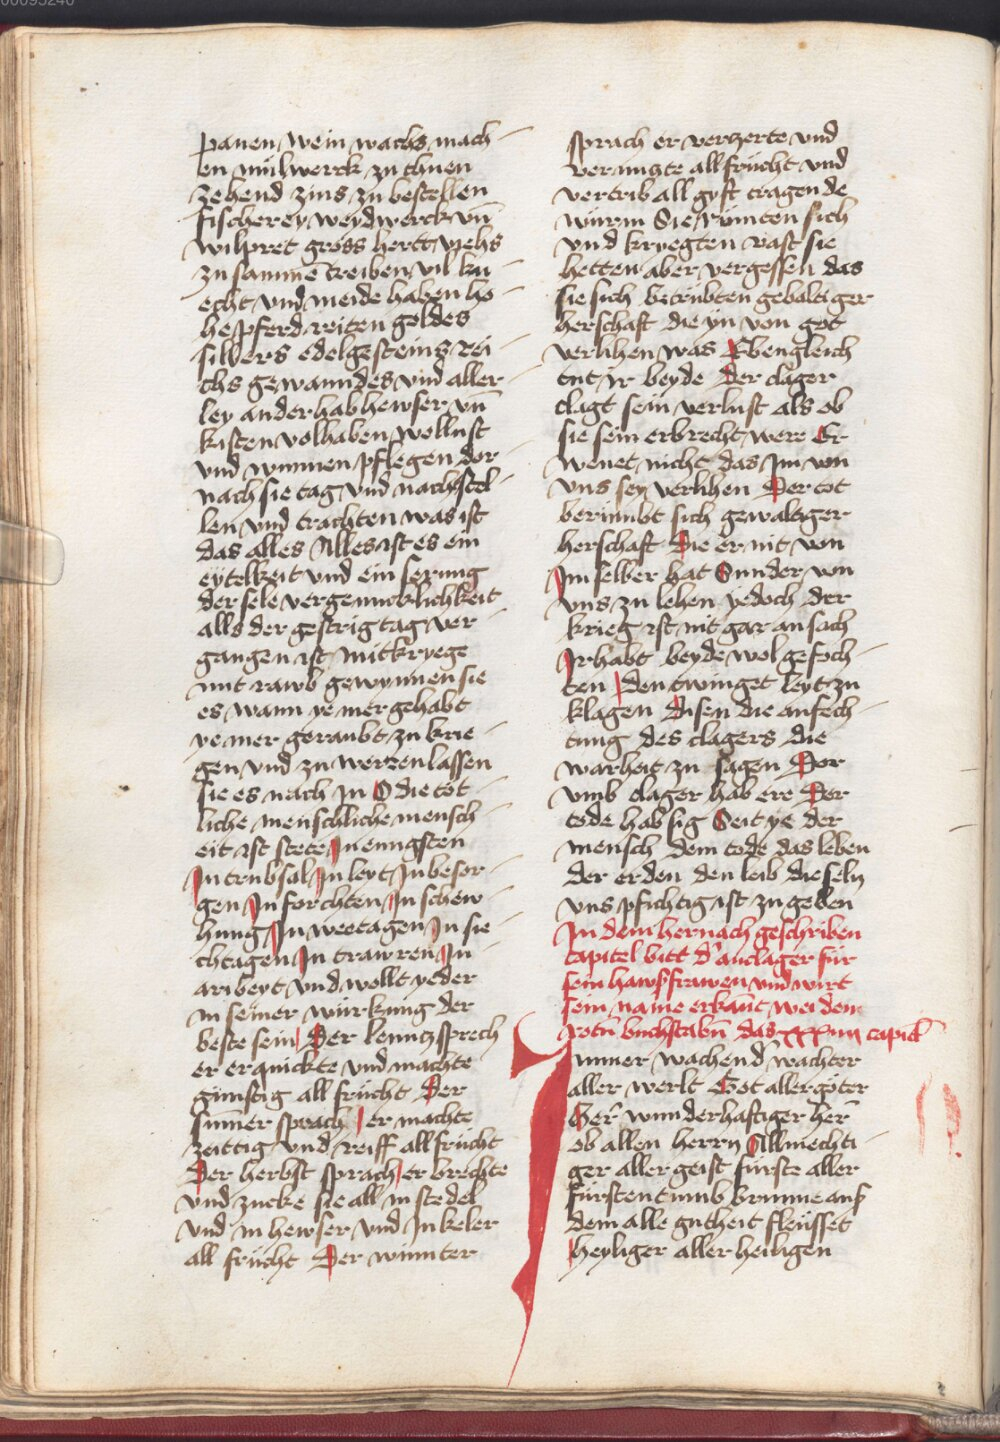 00095240
pawen wein wachs mach
en mülwerck zu thuen
zehend zins zu bestellen
fischerey weydwerck vn̄
wilpret gross hertt viehs
zu samme͂ treiben vil kn
echt vnd meide haben ho
he pferd reiten goldes
silbers edelgesteins rei
chs gewanndes vnd aller
ley ander hab hewser vn̄
kisten vol haben wollust
vnd wunnen pflegen dor
nach sie tag vnd nacht stel
len vnd trachten was ist
das alles Alles ist es ein
eytelkeit vnd ein serung
der sele vergenncklichkeit
alls der gestrig tag ver
gangen ist mit kryege
mit rawb gewynnen sie
es wann ye mer gehabt
ye mer geraubt zu krie
gen vnd zu werren lassen
sie es nach jn O die tot
liche menschliche mensch
eit ist stete Jn enngsten
Jn trubsal Jn leyt Jn besor
gen Jn forchten Jn schew
hung Jn weetagen Jn sie
chtagen Jn trawren Jn
aribeyt vnd wollt yeder
in seiner würkung der
beste sein Der lenncz sprech
er erquickte vnd machte
günstig all frücht Der
sum̄er sprach er machte
zeittig vnd reiff all frücht
Der herbst sprach er brechte
vnd zucke sie all in stedel
vnd in hewser vnd Jn keler
all frücht Der winnter
sprach er verzerte vnd
vernuczte all frücht vnd
vertrib all gyft tragende
würm Sie rümten sich
vnd kryegten vast sie
hetten aber vergessen das
sie sich betrübten geboltiger
herschaft die yn von got
verlihen was Ebengleich
tut ir beyde Der clager
clagt sein verlust als ob
sie sein erbrecht were Er
wenet nicht das Jm von
vns sey verlihen Der tot
berümbt sich gewaltiger
herschaft Die er nit von
Jm selber hat Sunder von
vns zu lehen yedoch der
krieg ist nit gar an sach
Jr habt beyde wol gefoch
ten Den twinget leyt zu
klagen Disen die anfech
tung des clagers die
warheit zu sagen Dor
vmb clager hab ere Der
tode hab sig Seit ye der
mensch dem tode das leben
der erden den leib die seln
vns pfichtig ist zu geben
Jn dem hernach geschriben
capitel bitt d' anclager für
sein hawsfrawen vnd wirt
sein name erkant wei den
rotn̄ buchstabn̄ das xxxiiii capitl
Jmmer wachend' wachter
aller werlt Got aller göter
Her wunderhaftiger her
ob allen herrn Allmechti
ger aller geist fürste aller
fürstentumb brunne auss
dem alle gutheit fleüsset
Heyliger aller heiligen